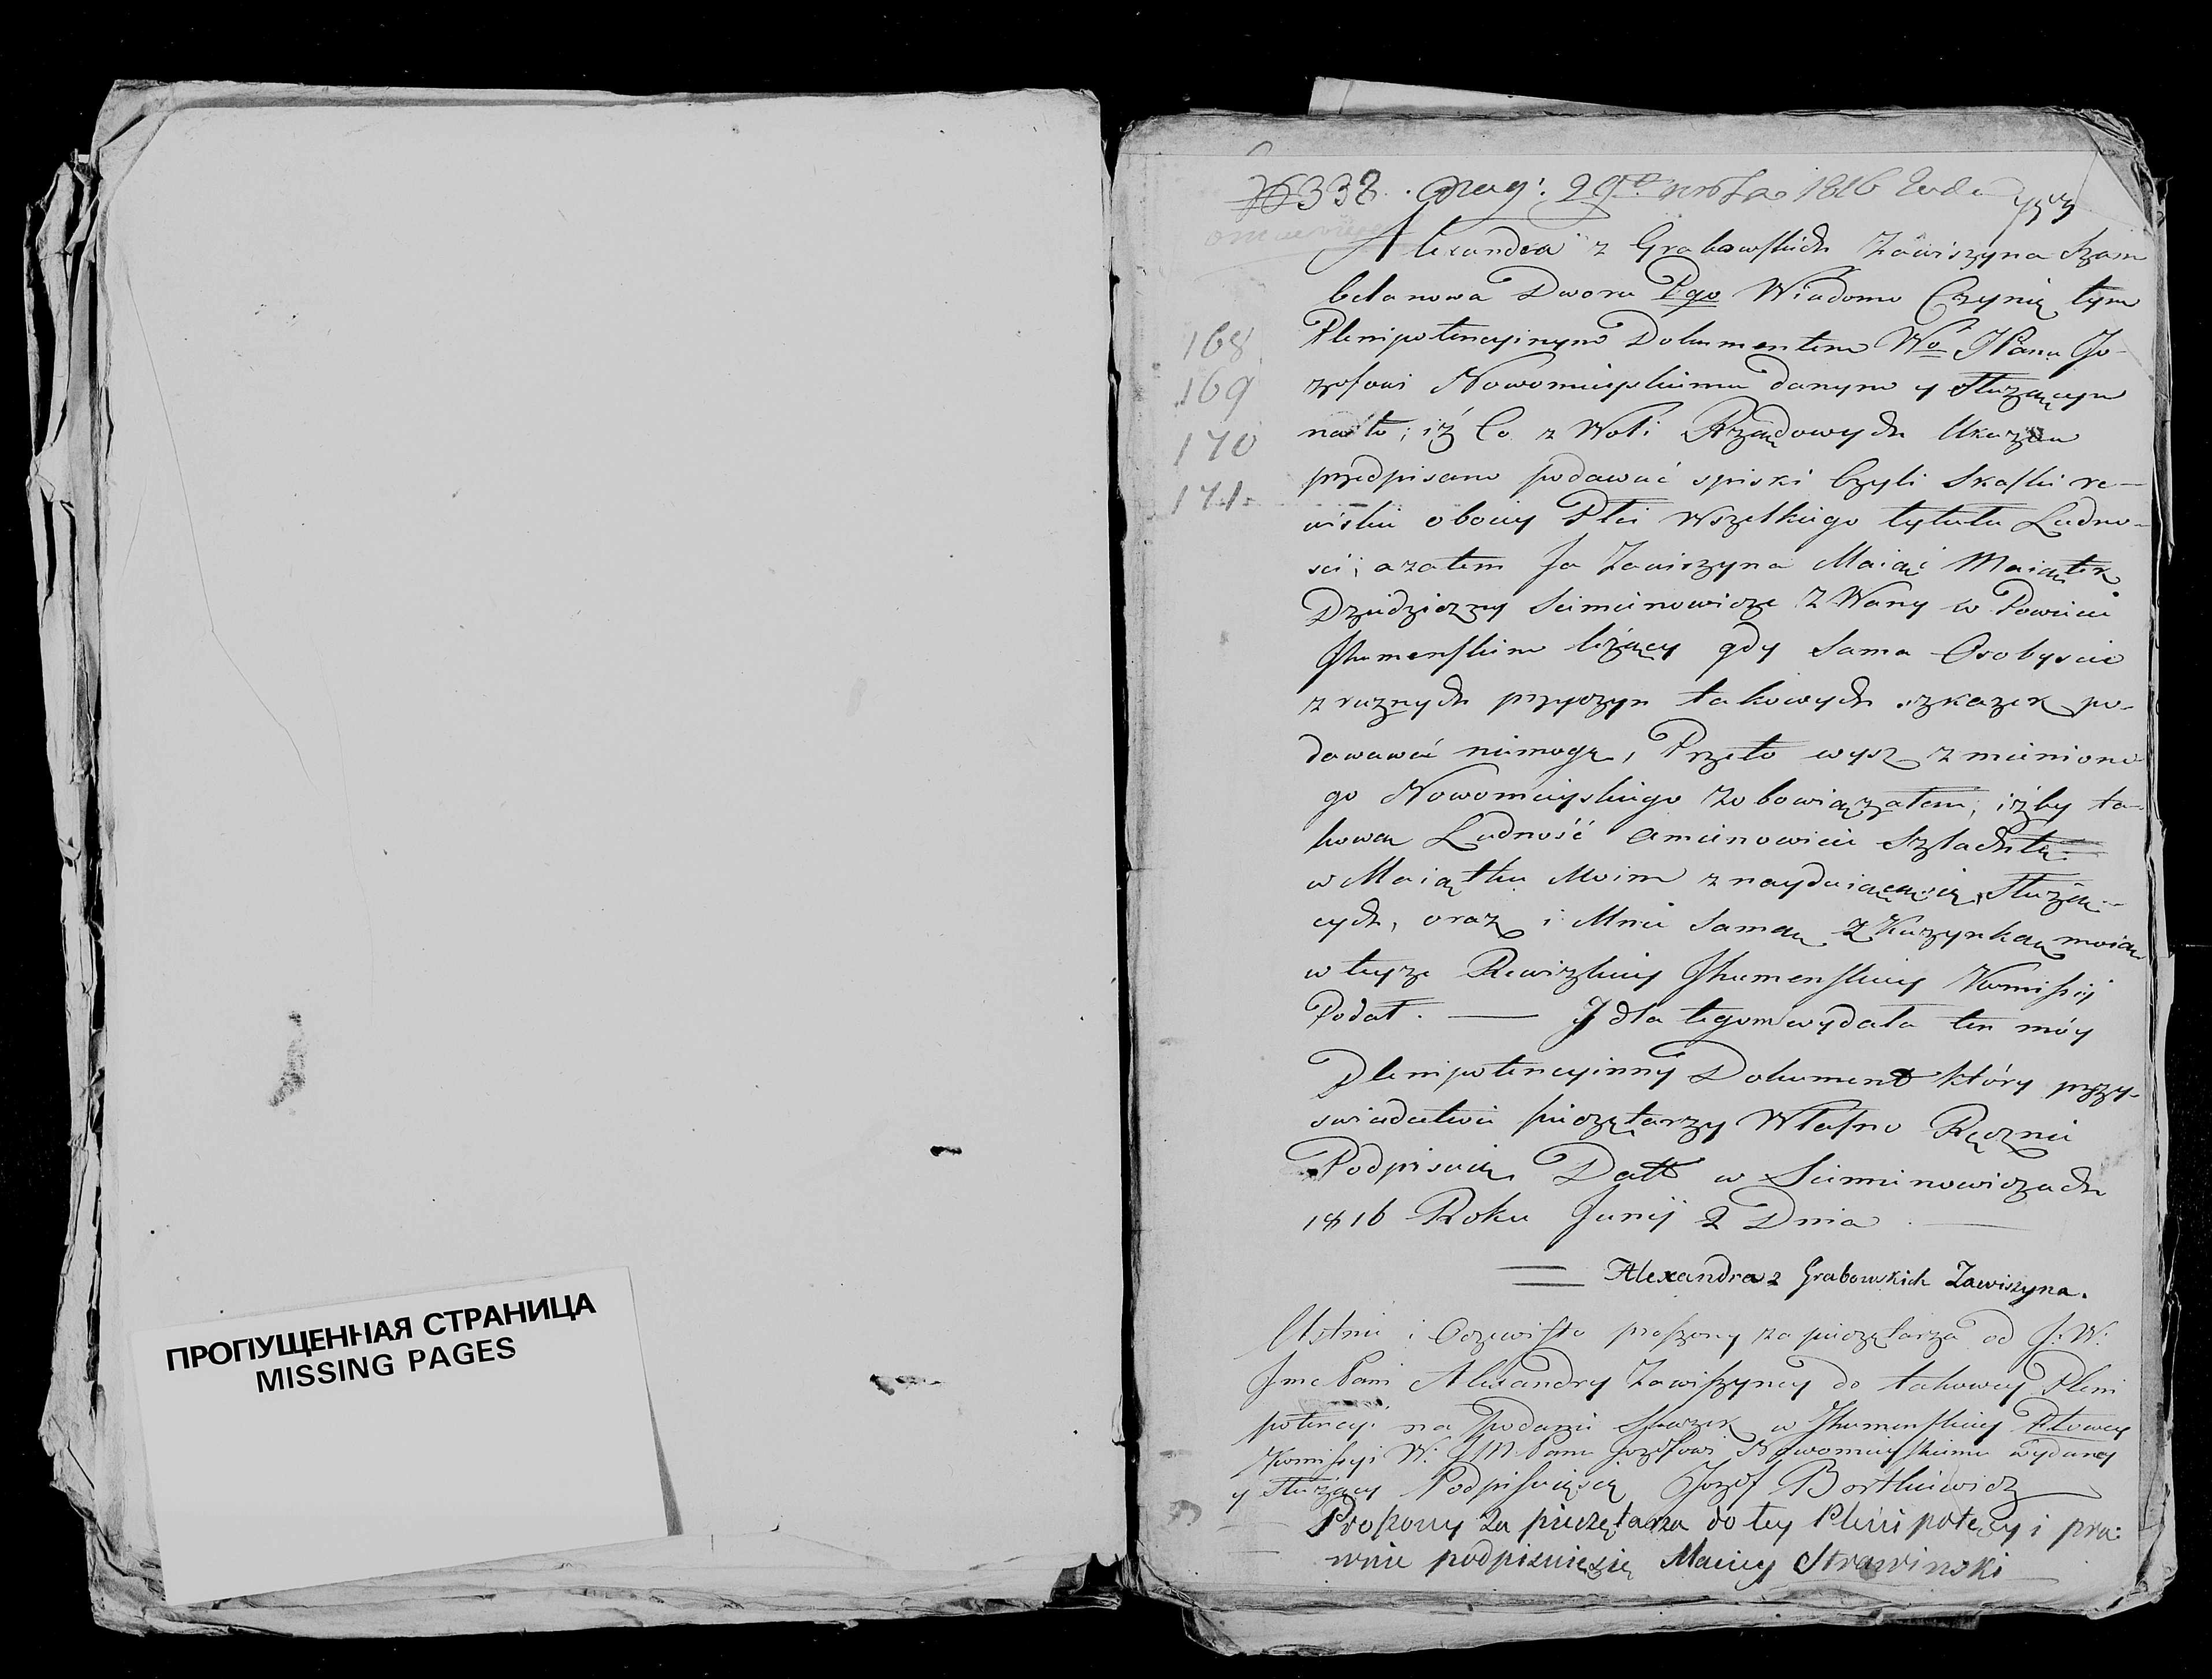 ПРОПУЩЕННАЯ СТРАНИЦА
MISSING PAGES
№338. 29го 1816
Alexandra z Grabowskich Zawiszyna Szam
belanowa Dworu Pgo Wiadomo Czynię tym
Plenipotencyinym Dokumentem Wo JPanu Jo-
zefowi Nowomieyskiemu danym y służącym
na to; iż Co z Woli Rządowych Ukazow
przedpisano podawać spiski czyli Skaski re-
wiskie oboiey Płci Wszelkiego tytułu Ludno-
sci; azatem Ja Zawiszyna Maiąc Maiątek
Dziedziczny Siemienowicze ZWany w Powiecie
Jhumenskim leżący gdy Sama Osobyscie
z ruznych przyczyn takowych szkazek po-
dawawać niemogę, Przeto wysz zmienione-
go Nowomieyskiego zobowiązałem; iżby ta-
kową Ludność amienowicie Szlachtę
w Maiątku Moim znayduiącą się Służą-
cych, oraz i Mnie Samą z Kuzynką moią
w teyże Rewizkiey Jhumenskiey Komissij
Podał. — J dla tegom wydała ten móy
Plenipotencyinny Dokument który przy
swiadectwie pieczętarzy Własno Ręcznie
Podpisuię Datt w Siemienowiczach
1816 Roku Junij 2 Dnia
Alexandra z Grabowskich Zawiszyna.
Ustnie i Oczewisto proszony za pieczętarza od J. W.
Jmc Pani Alexandry Zawiszyney do takowey Pleni
potencyi na Podanie Skazek w Jhumenskiey Pttowey
Komissyi W: JM Panu Jozefowi Nowomieyskiemu wydaney
y służącey Podpisuięsię Jozef Bortkiewicz
Proszony za pieczętarza do tey Plenipotęcyi i pra:
wnie podpisuięsię Maciey Strawinski
168
169
170
171.